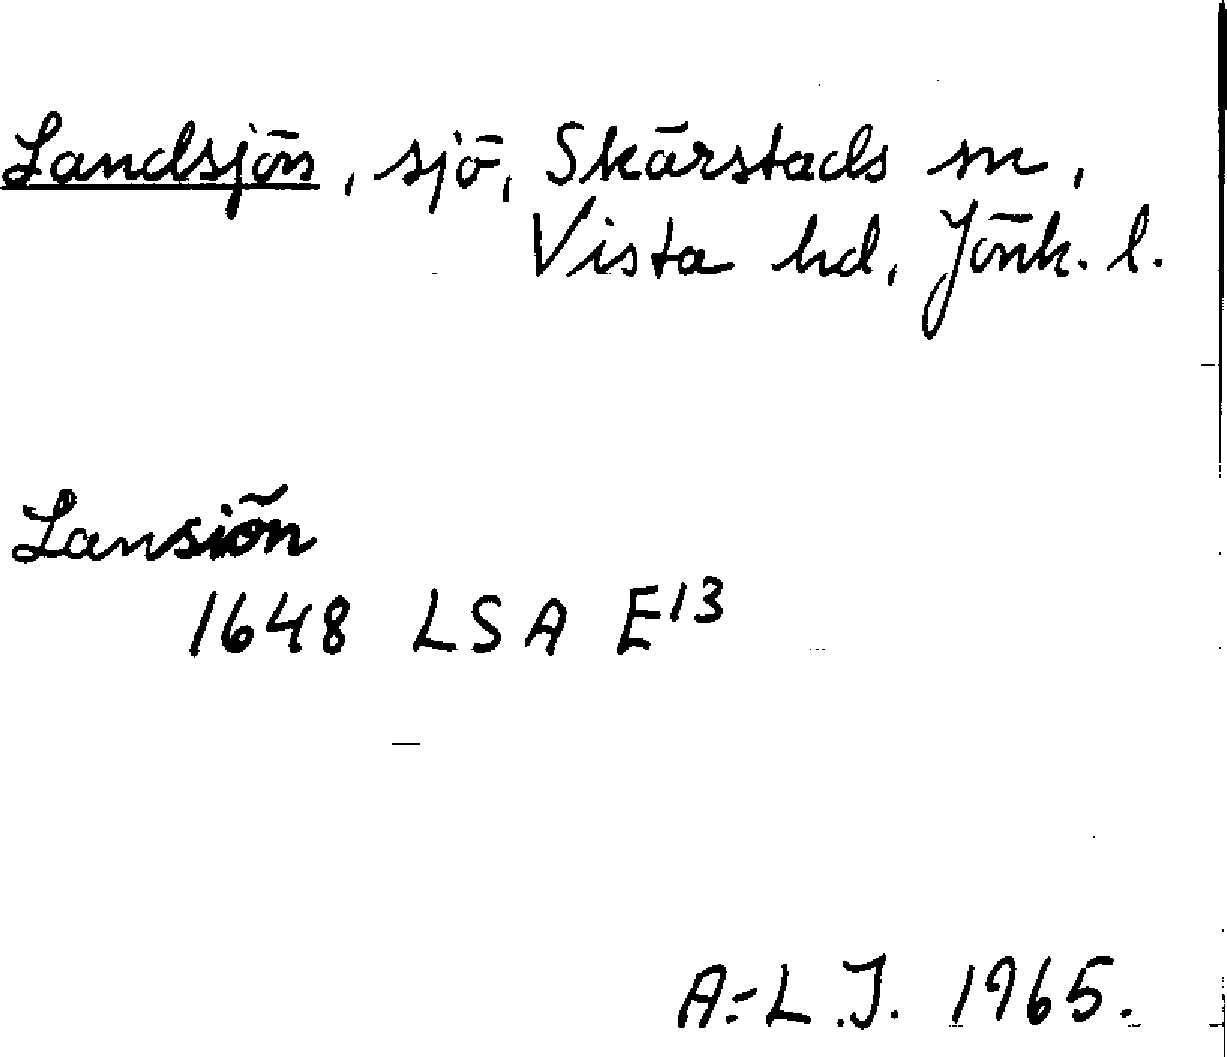 Landsjön, sjö, Skärstads sn,
Vista hd, Jönk. l.
Lansiön
1648 LSA E13
A.-L.J. 1965.